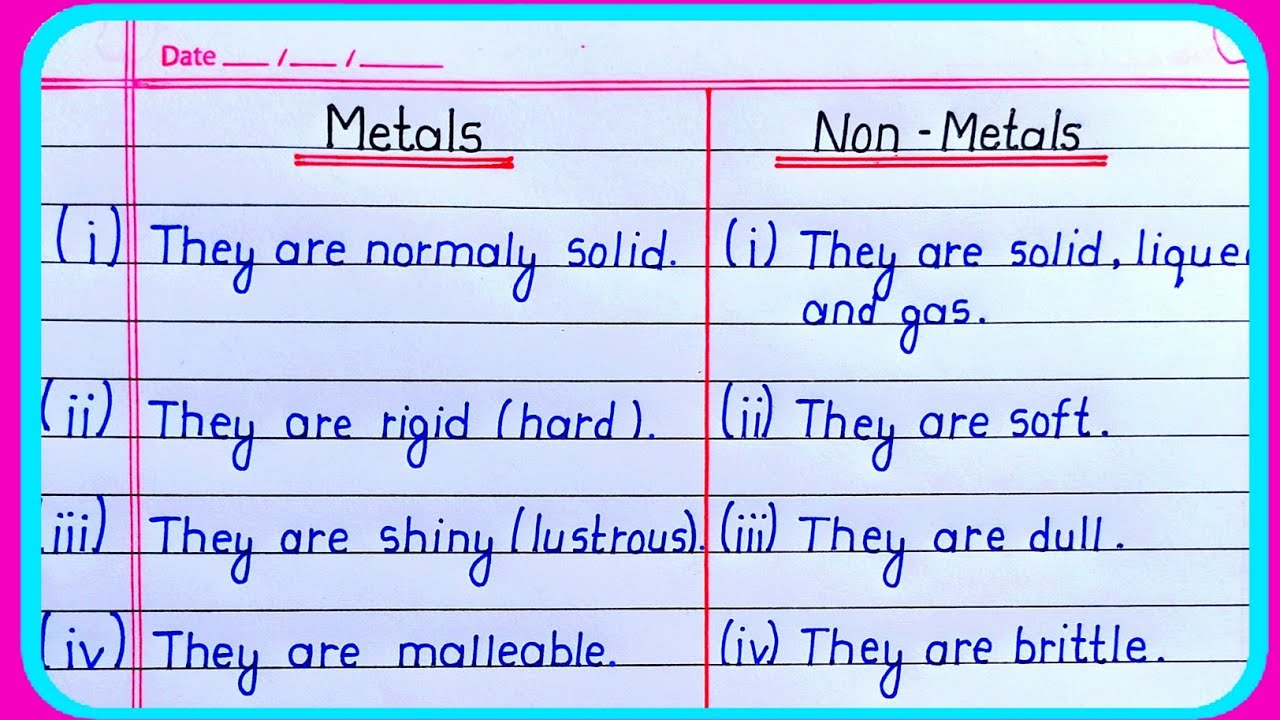 Date ___ /___ /______
Metals
Non - Metals
(i) They are normaly solid.
(i) They are solid,
and gas.
(ii) They are rigid (hard).
(ii) They are soft.
iii) They are shiny (lustrous).
(iii) They are dull.
(iv) They are malleable.
(iv) They are brittle.